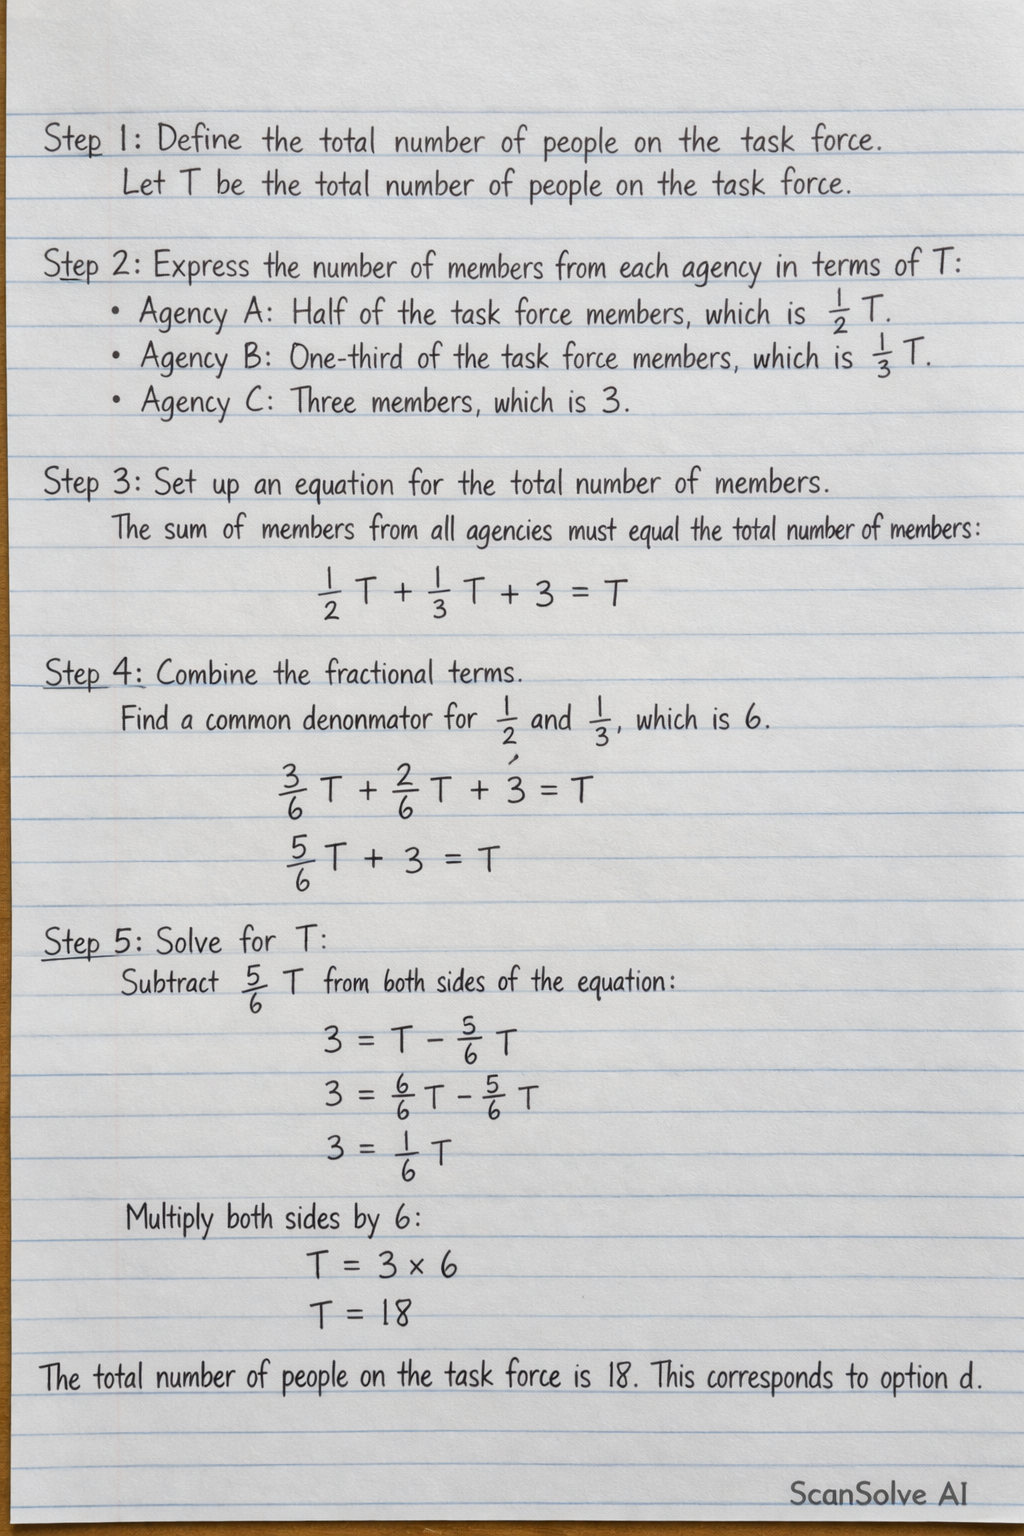 Step 1: Define the total number of people on the task force.
Let T be the total number of people on the task force.
Step 2: Express the number of members from each agency in terms of T:
• Agency A: Half of the task force members, which is 1/2 T.
• Agency B: One-third of the task force members, which is 1/3 T.
• Agency C: Three members, which is 3.
Step 3: Set up an equation for the total number of members.
The sum of members from all agencies must equal the total number of members:
1/2 T + 1/3 T + 3 = T
Step 4: Combine the fractional terms.
Find a common denonmator for 1/2 and 1/3, which is 6.
3/6 T + 2/6 T + 3 = T
5/6 T + 3 = T
Step 5: Solve for T:
Subtract 5/6 T from both sides of the equation:
3 = T - 5/6 T
3 = 6/6 T - 5/6 T
3 = 1/6 T
Multiply both sides by 6:
T = 3 × 6
T = 18
The total number of people on the task force is 18. This corresponds to option d.
ScanSolve AI